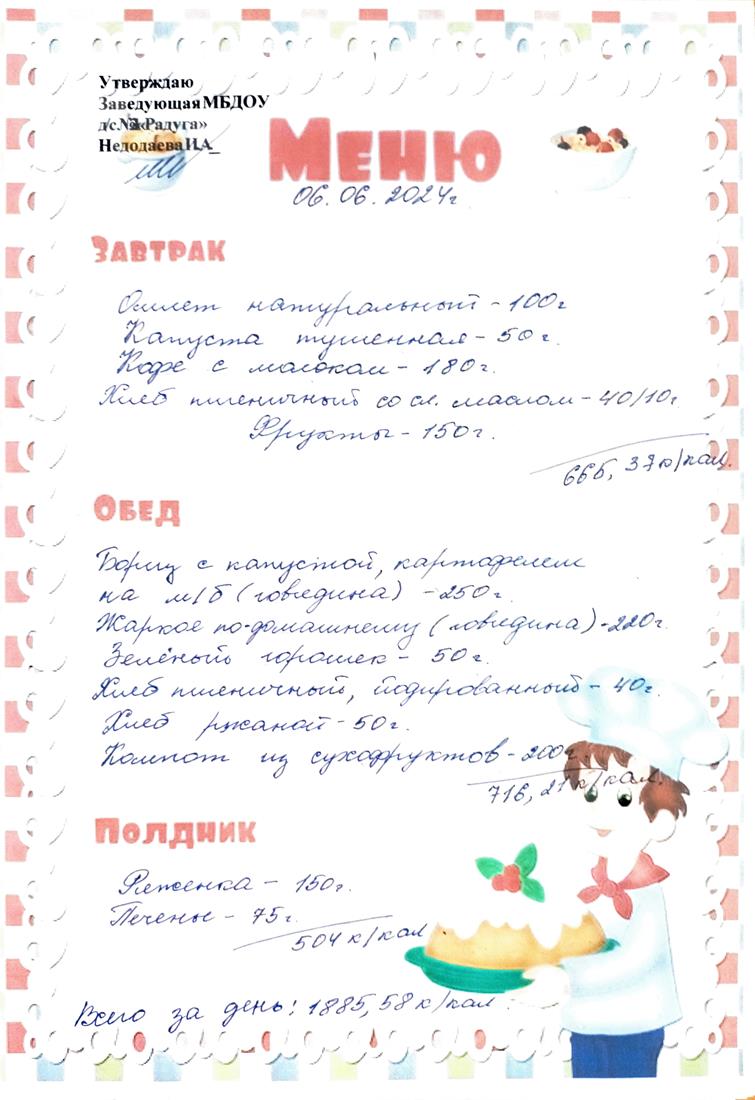 Утверждаю
Заведующая МБДОУ
д/с №2 «Радуга»
Недодаева И.А_
Меню
06.06.2024г
Завтрак
Омлет натуральный - 100г
Капуста тушенная - 50г.
Кофе с молоком - 180г.
Хлеб пшеничный со сл. маслом - 40/10г
Фрукты - 150г.
665, 37 к/кал.
Обед
Борщ с капустой, картофелем
на м/б (говядина) - 250г.
Жаркое по-домашнему (говядина) - 220г.
Зелёный горошек - 50г.
Хлеб пшеничный, йодированный - 40г.
Хлеб ржаной - 50г.
Компот из сухофруктов - 200г.
716, 21 к/кал.
Полдник
Ряженка - 150г.
Печенье - 75г.
504 к/кал
Всего за день: 1885,58 к/кал.